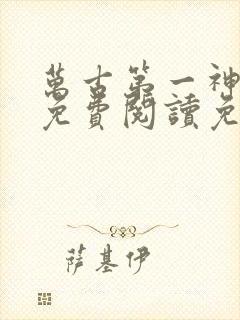 萬古第一神
免費閱讀免
萨基伊